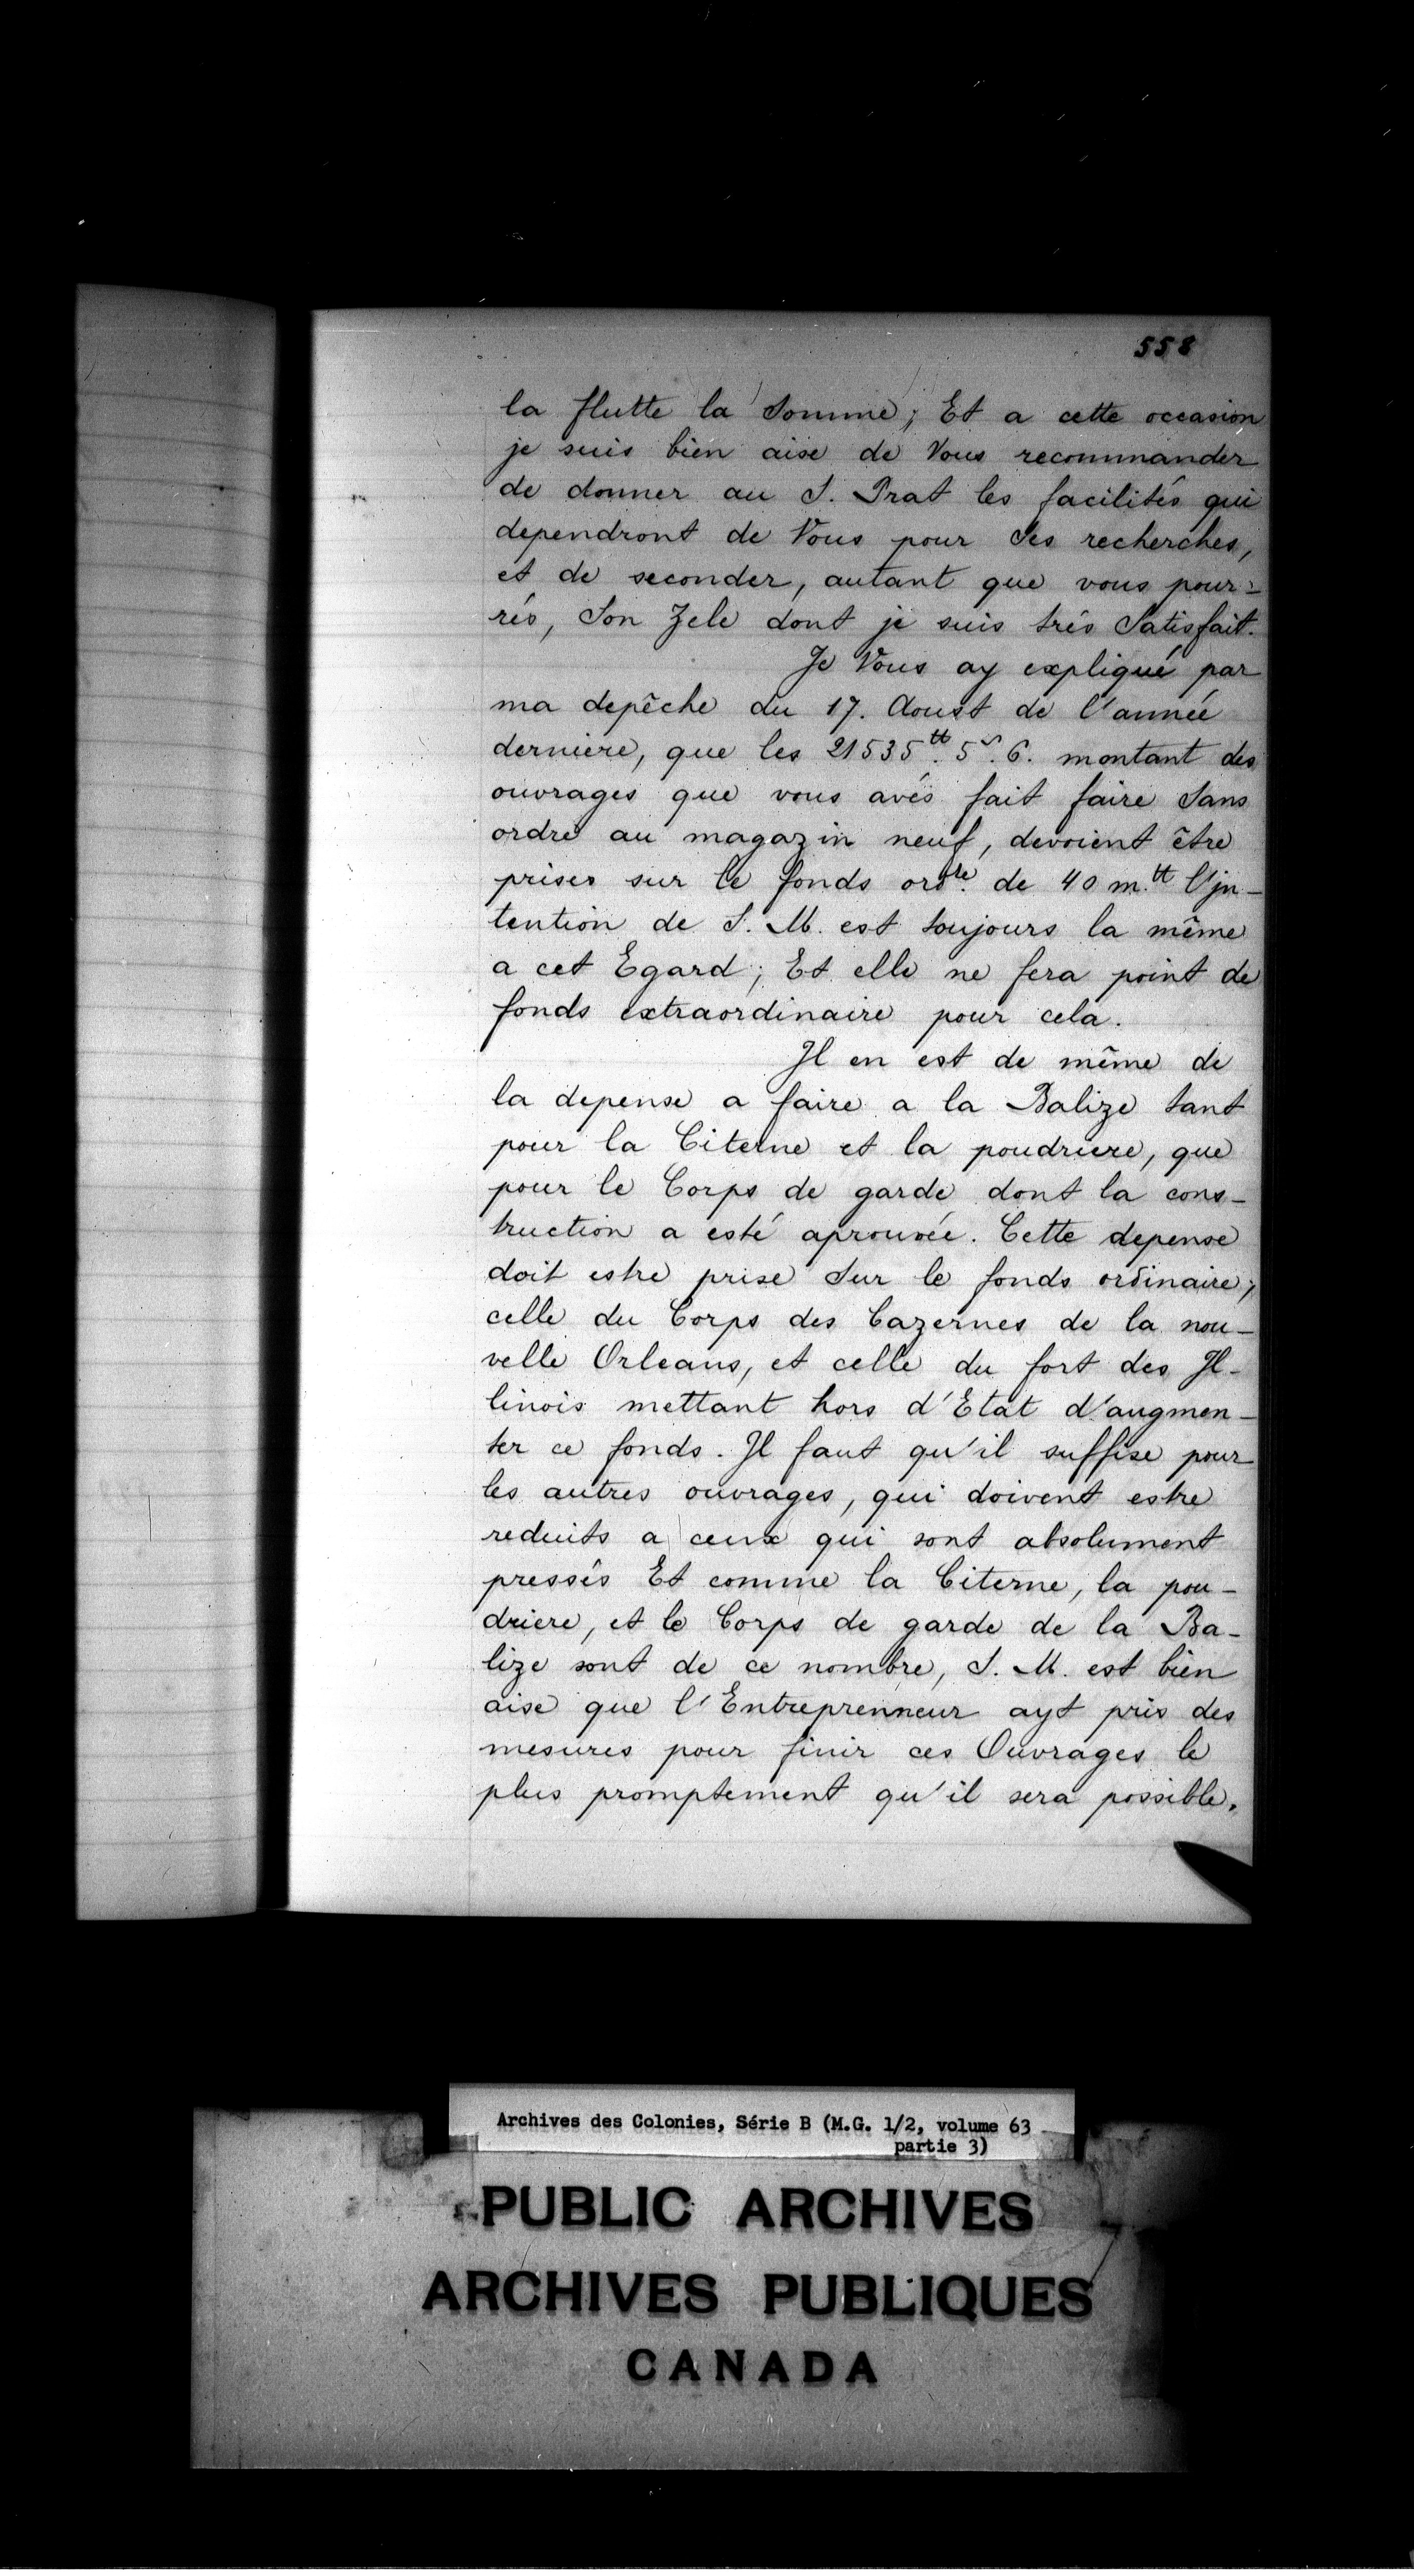 558
la flutte la Somme; Et a cette occasion
je suis bien aise de Vous recommander
de donner au S. Prat les facilités qui
dependront de Vous pour Ses recherches,
et de seconder, autant que vous pour-
rés, Son Zele dont je suis trés Satisfait.
Je Vous ay expliqué par
ma depêche du 17. Aoust de l'année
derniere, que les 21535tt. 5s. 6. montant des
ouvrages que vous avés fait faire Sans
ordre au magazin neuf, devoient être
prises sur le fonds ordre. de 40 m.tt L'jn-
tention de S. M. est toujours la même
a cet Egard; Et elle ne fera point de
fonds extraordinaire pour cela.
Il en est de même de
la depense a faire a la Balize tant
pour la Citerne et la poudriere, que
pour le Corps de garde dont la cons-
truction a esté aprouvée. Cette depense
doit estre prise Sur le fonds ordinaire,
celle du Corps des Cazernes de la nou-
velle Orleans, et celle du fort des Il-
linois mettant hors d'Etat d'augmen-
ter ce fonds. Il faut qu'il suffise pour
les autres ouvrages, qui doivent estre
reduits a ceux qui sont absolument
pressés Et comme la Citerne, la pou-
driere, et le Corps de garde de la Ba-
lize sont de ce nombre, S. M. est bien
aise que l'Entreprenneur ayt pris des
mesures pour finir ces Ouvrages le
plus promptement qu'il sera possible.
Archives des Colonies, Série B (M.G. 1/2, volume 63
partie 3)
PUBLIC ARCHIVES
ARCHIVES PUBLIQUES
CANADA